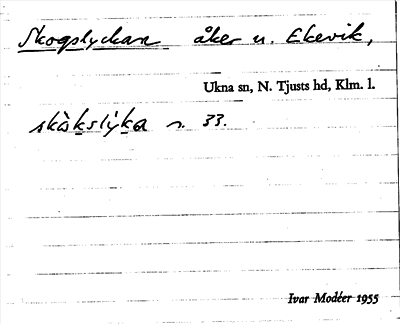 Skogslyckan åker u. Ekevik,
Ukna sn, N. Tjusts hd, Klm. l.
skòkslýka s. 33.
Ivar Modéer 1955